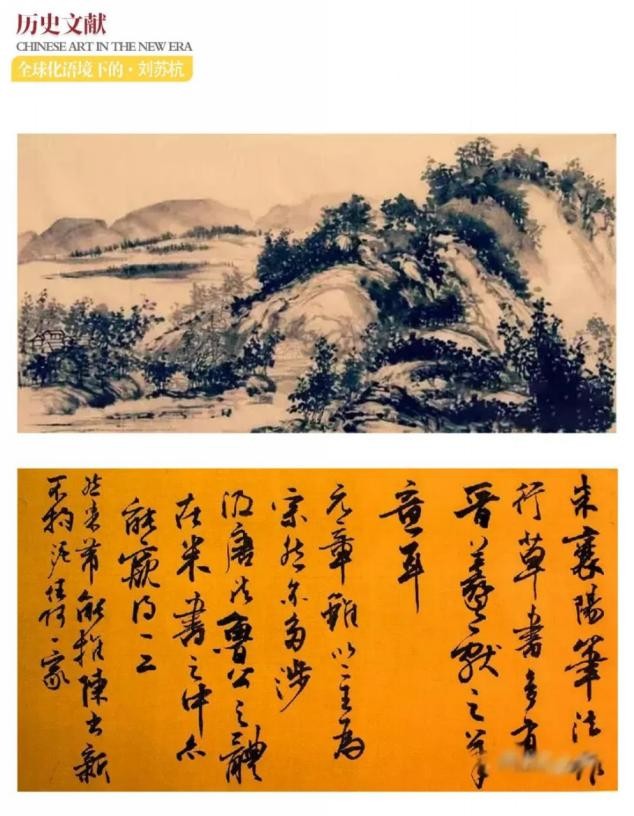 历史文献
CHINESE ART IN THE NEW ERA
全球化语境下的·刘苏杭
米襄陽筆法作
行草書多有
晉羲獻之筆
意耳
元章雖以二王為
宗然亦多涉
唐法魯公之體
在米書之中亦
能窺得一二
然米芾能推陳出新
不拘泥任何一家